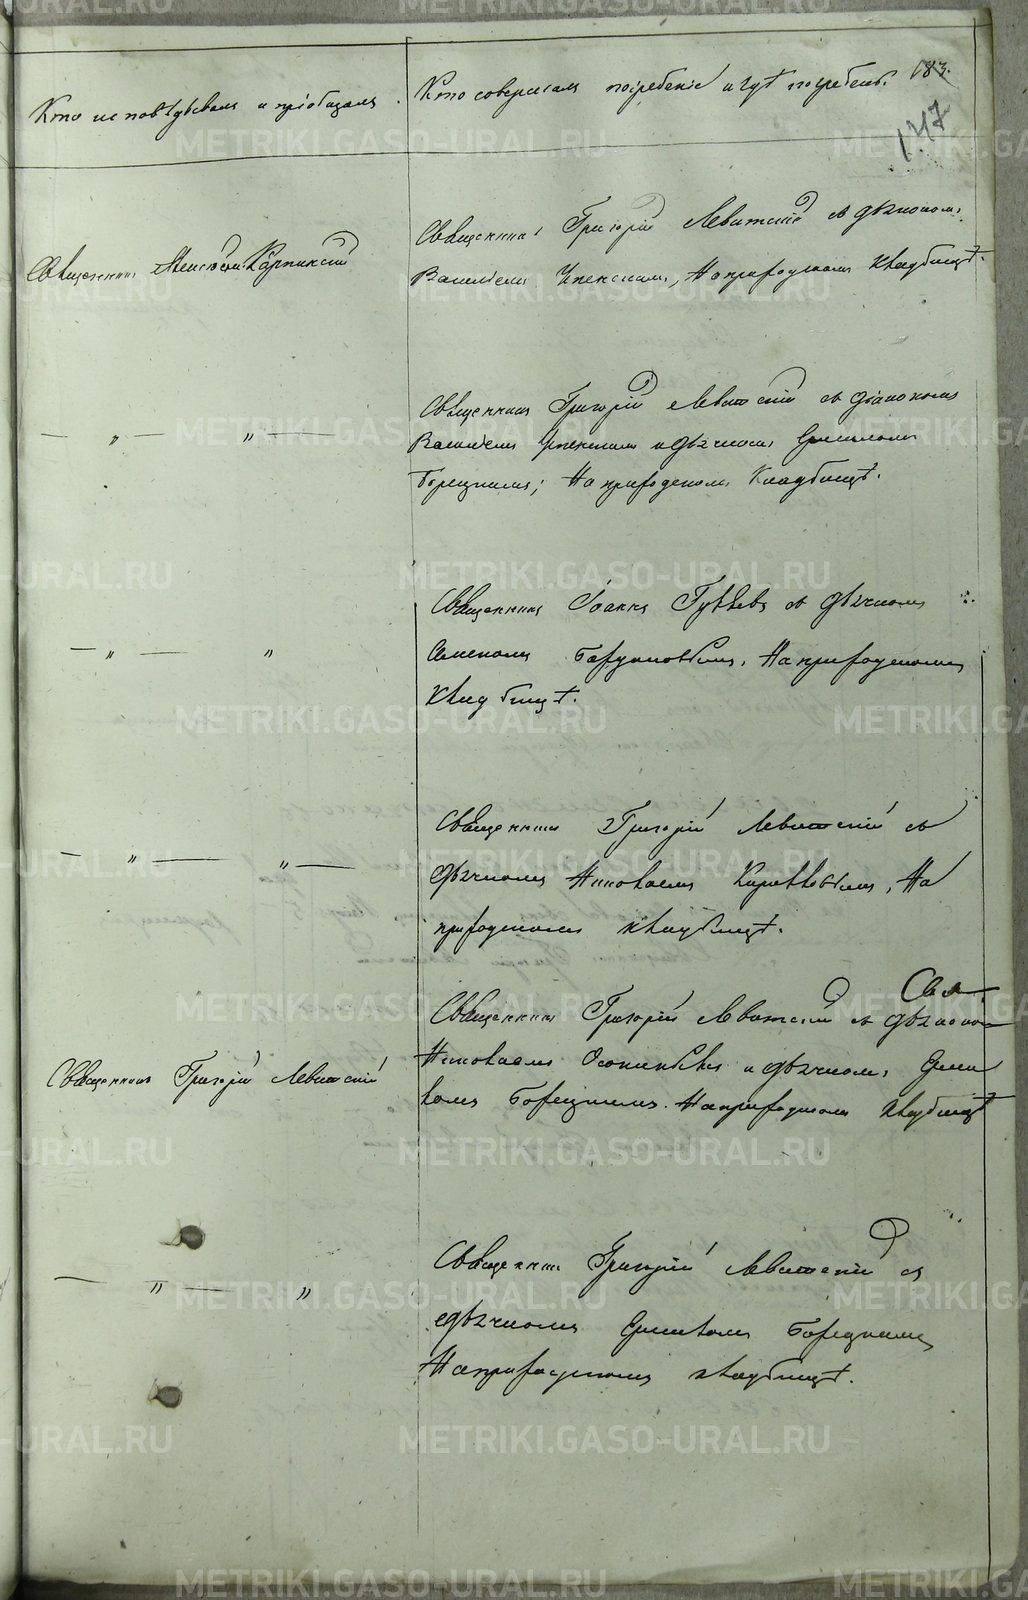 Кто исповѣдывалъ и пріобщалъ.
Кто совершалъ погребеніе и гдѣ погребены.
183.
147
Священникъ Карпинскій
Священникъ Григорій Левитскій съ дьякономъ
Василіемъ Успенскимъ, На приходскомъ кладбищѣ.
— „ — „ —
Священникъ Григорій Левитскій съ діакономъ
Василіемъ Успенскимъ и дьячкомъ Ермиломъ
Борецкимъ; На приходскомъ Кладбищѣ.
— „ — „
Священникъ Іоаннъ съ дьячкомъ
Семеномъ На приходскомъ
кладбищѣ.
— „ — „ —
Священникъ Григорій Левитскій съ
дьячкомъ Николаемъ На
приходскомъ кладбищѣ.
Священникъ Григорій Левитскій
Священникъ Григорій Левитскій съ
Николаемъ и дьячкомъ Ерми
ломъ Борецкимъ. На приходскомъ кладбищѣ
— „ — „
Священникъ Григорій Левитскій съ
дьячкомъ Ермиломъ Борецкимъ
На приходскомъ кладбищѣ.
METRIKI.GASO-URAL.RU